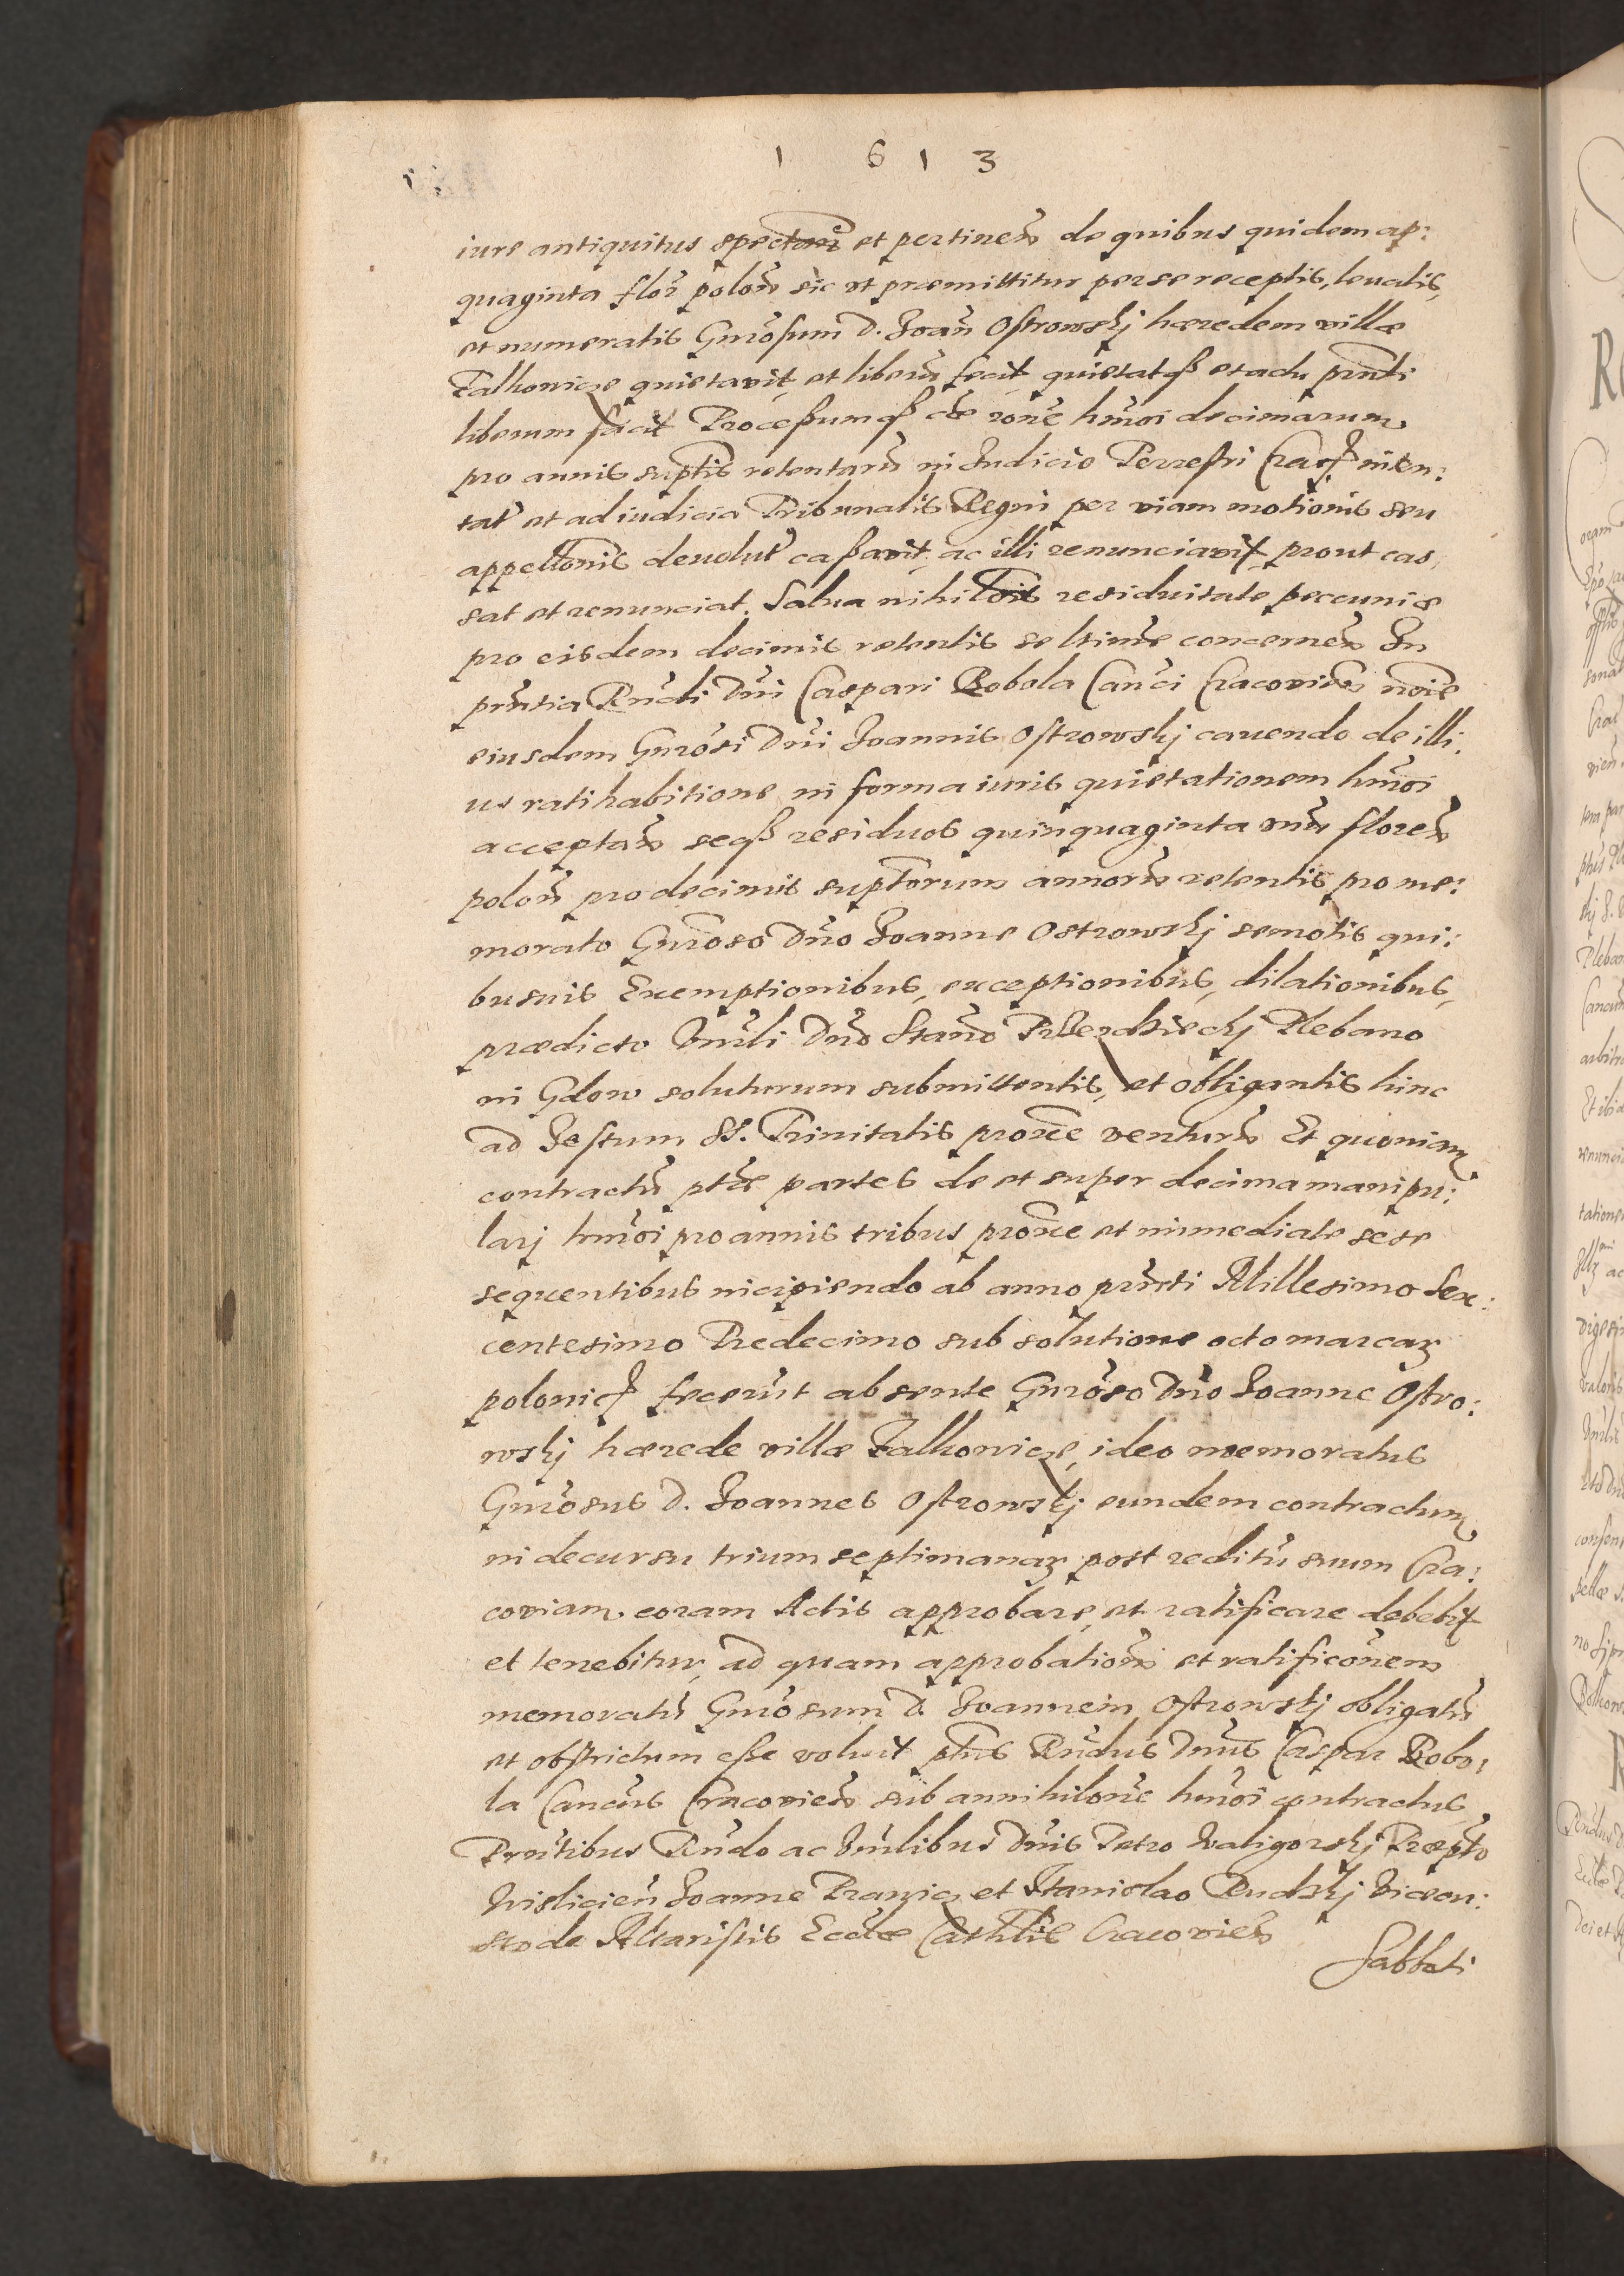 1 6 1 3
iure antiquitus spectan̄ et pertinen̄ de quibus quidem
quaginta flor̄ polon̄ sic vt præmittitur per se receptis, leuatis,
et numeratis Gnrōsum D. Joan̄ Ostrowskj hæredem villæ
Falkowice quietavit, et liberū fecit quietatqß et actu prn̄ti
liberum facit Processumqß rōne hm̄oi decimarum
pro annis suptis retentarū in Judicio Terrestri Crac inten:
tat̄ et ad iudicia Tribunalis Regni per viam motionis seu
appellōnis deuolut̄ cassavit, ac illi renunciavit, prout cas,
sat et renunciat. Salua nihil̄ois residuitate peccuniæ
pro eisdem decimis retentis se ltime concernen̄ In
prn̄tia Rn̄di Dn̄i Caspari Bobola Can̄ci Cracovien̄ noīe
eiusdem Gnrōsi Dn̄i Joannis Ostrowskj cauendo de illi:
us ratihabitione in forma iuris quietationem hm̄oi
acceptan̄ seqß residuos quinquaginta vnū floren̄
polon̄ pro decimis suptorum annorū retentis pro me:
morato Gnrōso Dn̄o Joanne Ostrowskj semotis qui:
busuis Exemptionibus, exceptionibus, dilationibus,
prædicto Vn̄li Dn̄o Stan̄o Plebano
in Gdow soluturum submittentis, et obligantis hinc
ad Festum SS. Trinitatis prox̄e venturū Et quoniam
contractū partes de et super decima manipu:
larj hm̄oi pro annis tribus prox̄e et immediate sese
sequentibus incipiendo ab anno prn̄ti Millesimo Sex:
centesimo Tredecimo sub solutione octo marcaꝝ
polonic fecerūt absente Gnrōso Dn̄o Joanne Ostro:
wskj hærede villæ Falkowice, ideo memoratus
Gnrōsus D. Joannes Ostrowskj eundem contractum
in decursu trium septimanaꝝ post reditū suum Cra:
coviam. coram Actis approbare, et ratificare debebit
et tenebitur, ad quam approbationē et ratificōnem
memoratū Gnrōsum D. Joannem Ostrowskj obligatū
et obstrictum esse voluit Rn̄dus Dn̄us Caspar Bobo:
la Can̄cus Cracovien̄ sub annihilōne hm̄oi contractus
Prn̄tibus Rn̄do ac Vn̄libus Dn̄is Petro Waligorskj Præpto
Wislicien̄ Joanne et Stanislao Rudzkj Vicecu:
stode Altaristis Eccl̄æ Cathlis Cracovien̄
Sabbati